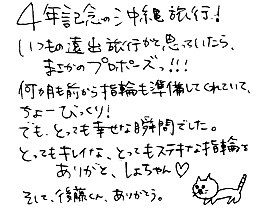 4年記念の沖縄旅行！
いつもの遠出旅行かと思っていたら、
まさかのプロポーズっ!!!
何ヵ月も前から指輪も準備してくれていて、
ちょーびっくり！
でも、とっても幸せな瞬間でした。
とってもキレイな、とってもステキな指輪を
ありがと、しょちゃん♡
そして、後藤くん、ありがとう。